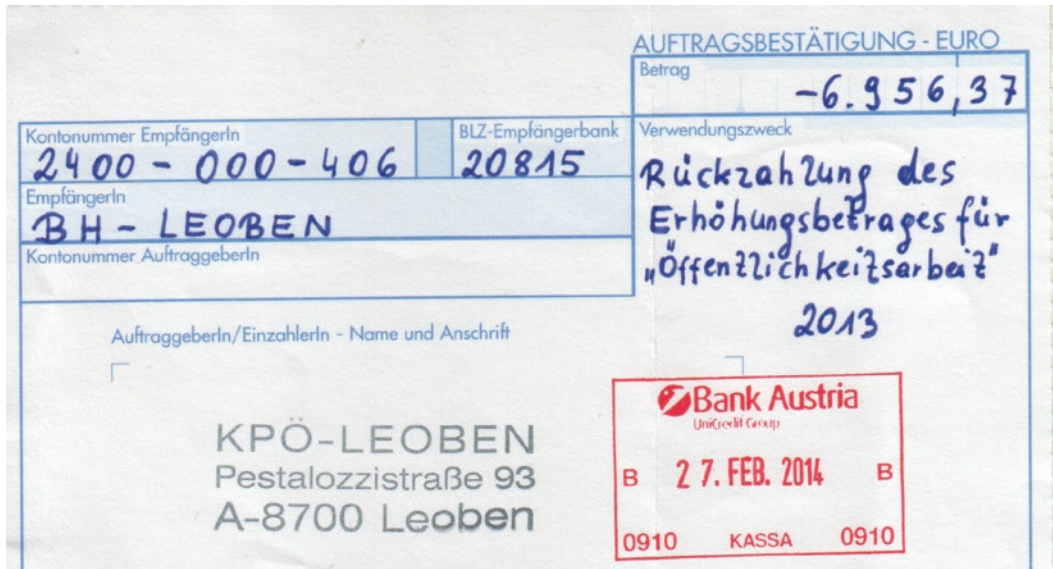 AUFTRAGSBESTÄTIGUNG - EURO
Betrag
-6.956,37
Kontonummer EmpfängerIn
BLZ-Empfängerbank
2400-000-406
20815
EmpfängerIn
BH - LEOBEN
Kontonummer AuftraggeberIn
Verwendungszweck
Rückzahlung des
Erhöhungsbetrages für
„Öffentlichkeitsarbeit"
2013
AuftraggeberIn/EinzahlerIn - Name und Anschrift
KPÖ-LEOBEN
Pestalozzistraße 93
A-8700 Leoben
Bank Austria
UniCredit Group
B 27. FEB. 2014 B
0910 KASSA 0910